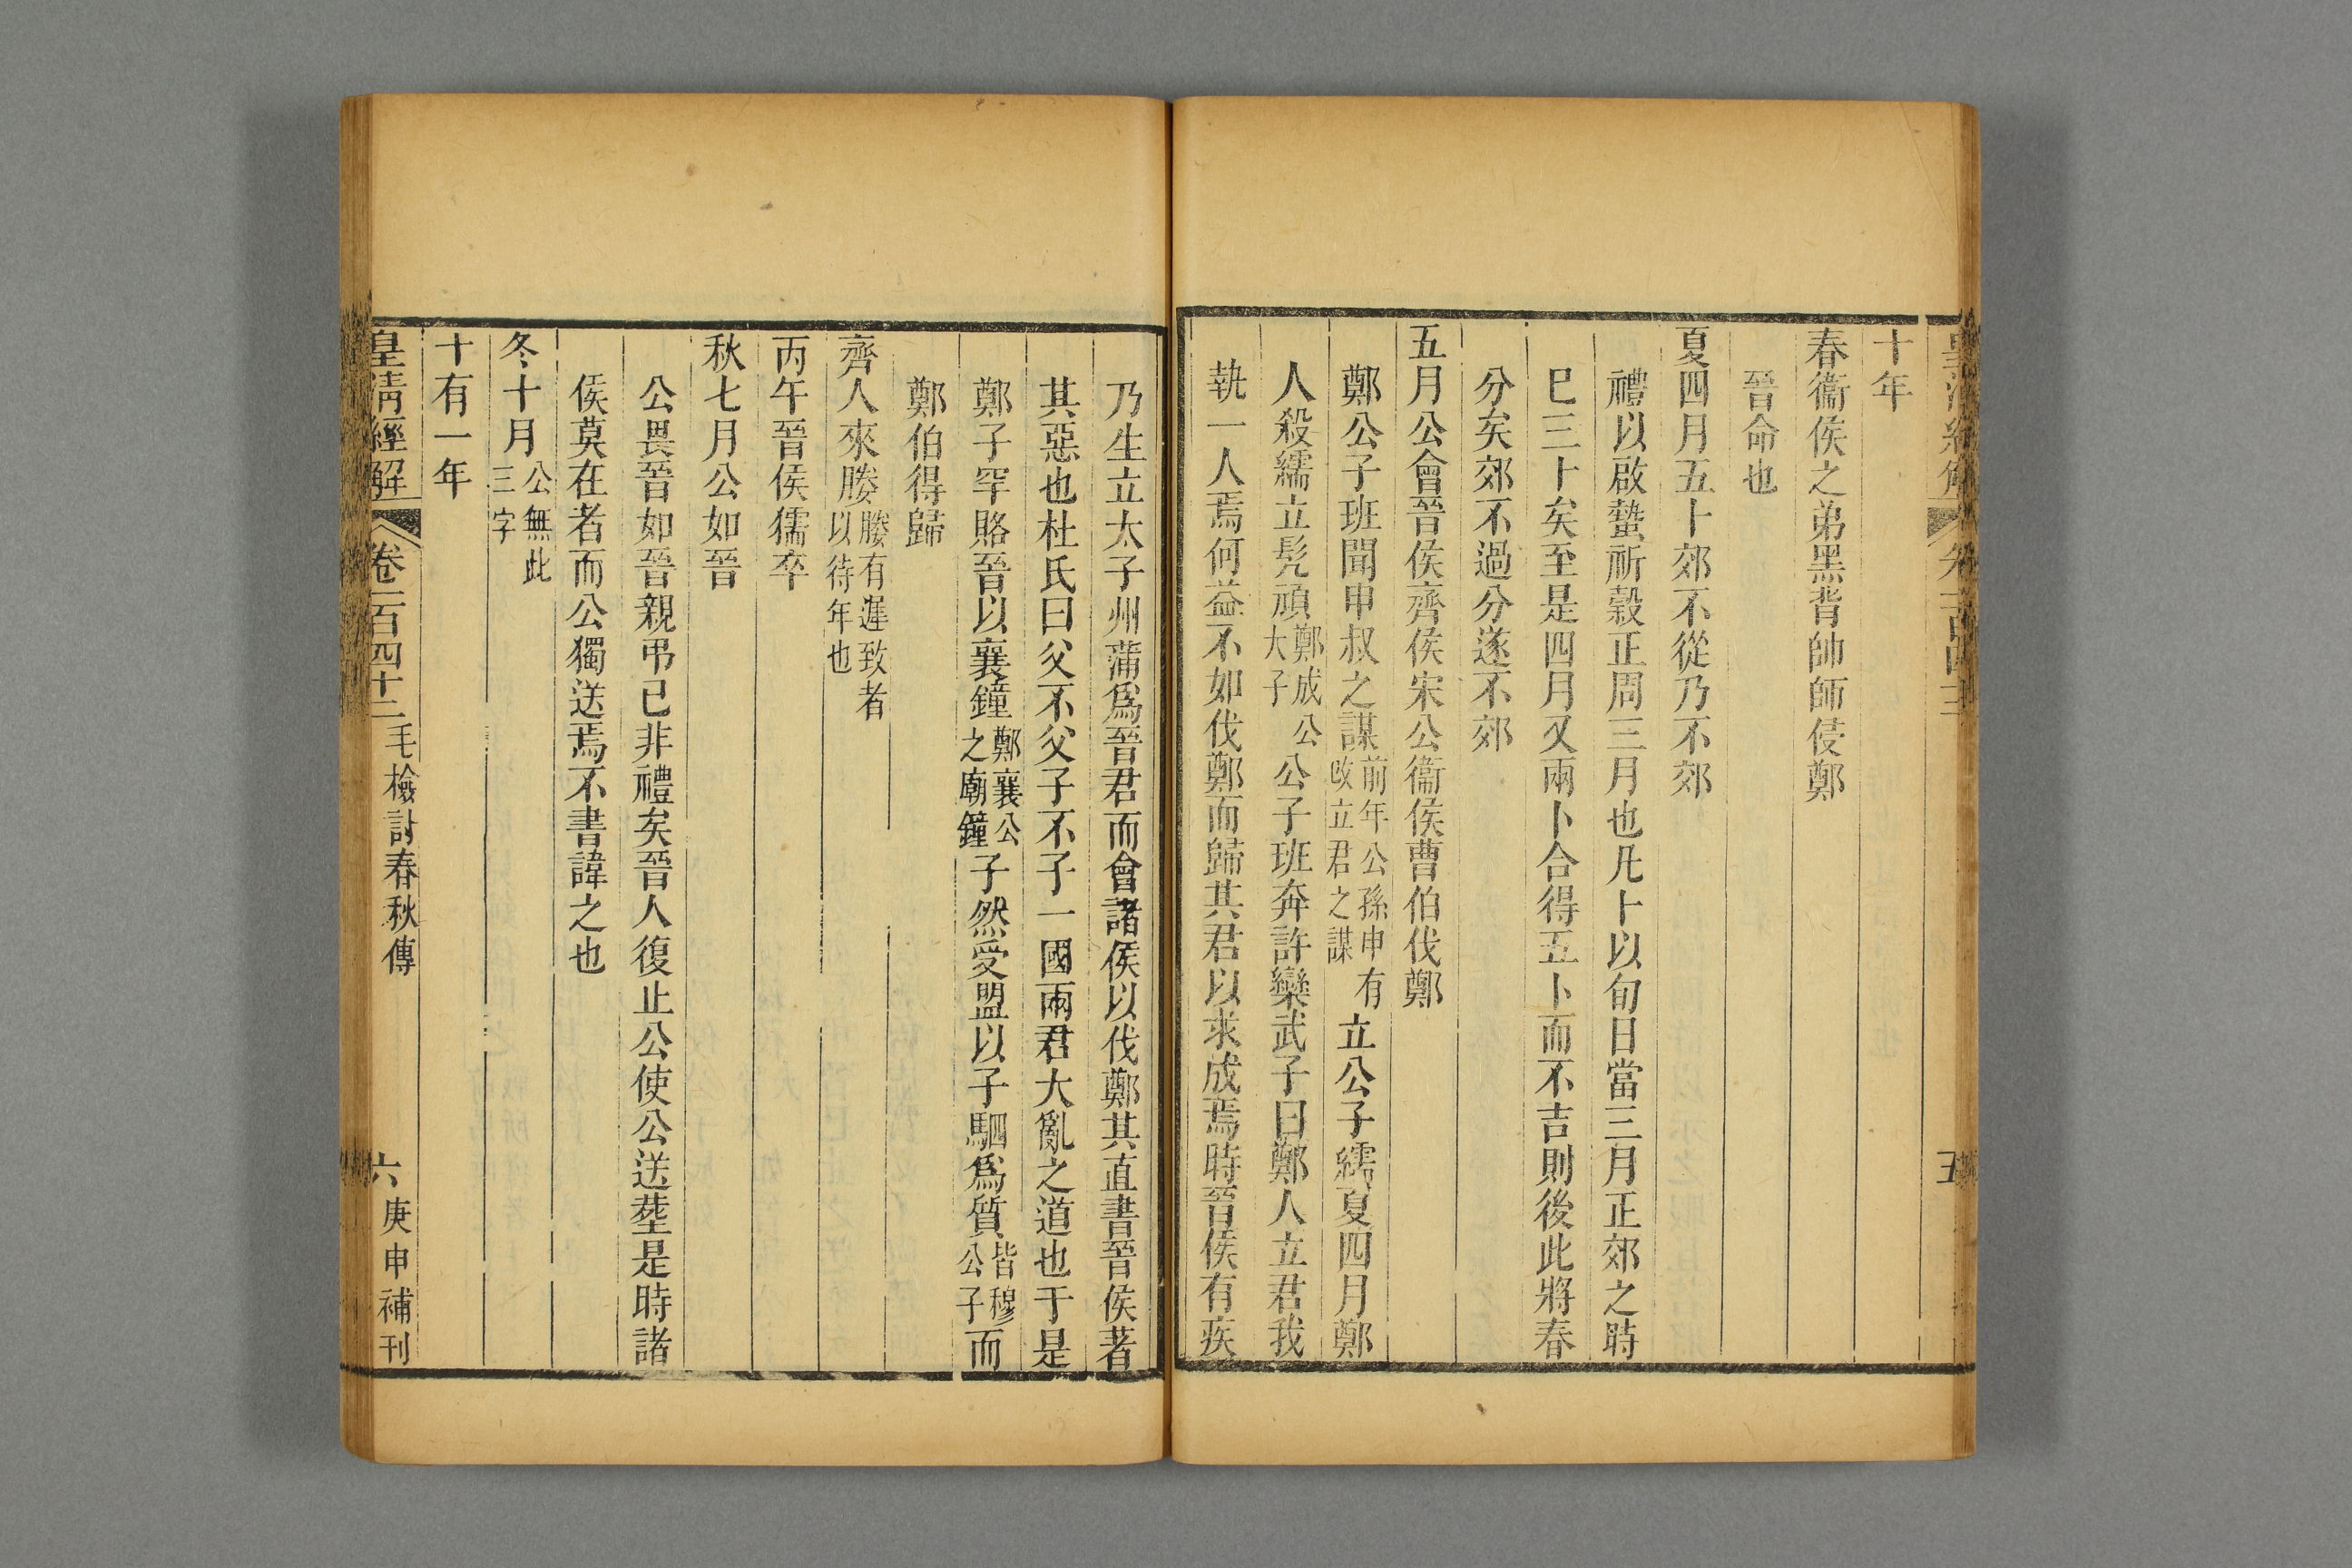 十年
春衞侯之弟黑背帥師侵鄭
晉命也
夏四月五卜郊不從乃不郊
禮以啟蟄祈穀正周三月也凡卜以旬日當三月正郊之時
巳三卜矣至是四月又兩卜合得五卜而不吉則後此將春
分矣郊不過分遂不郊
五月公會晉侯齊侯宋公衞侯曹伯伐鄭
鄭公子班聞申叔之謀前年公孫申有改立君之謀立公子繻夏四月鄭
人殺繻立髡頑鄭成公大子公子班奔許欒武子曰鄭人立君我
執一人焉何益不如伐鄭而歸其君以求成焉時晉侯有疾
乃生立太子州蒲爲晉君而會諸侯以伐鄭其直書晉侯著
其惡也杜氏曰父不父子不子一國兩君大亂之道也于是
鄭子罕賂晉以襄鐘鄭襄公之廟鐘子然受盟以子駟爲質皆穆公子而
鄭伯得歸
齊人來媵媵有遲致者以待年也
丙午晉侯獳卒
秋七月公如晉
公畏晉如晉親弔已非禮矣晉人復止公使公送葬是時諸
侯莫在者而公獨送焉不書諱之也
冬十月公無此三字
十有一年
皇清經解 卷一百四十二 毛檢討春秋傳 六 庚申補刊